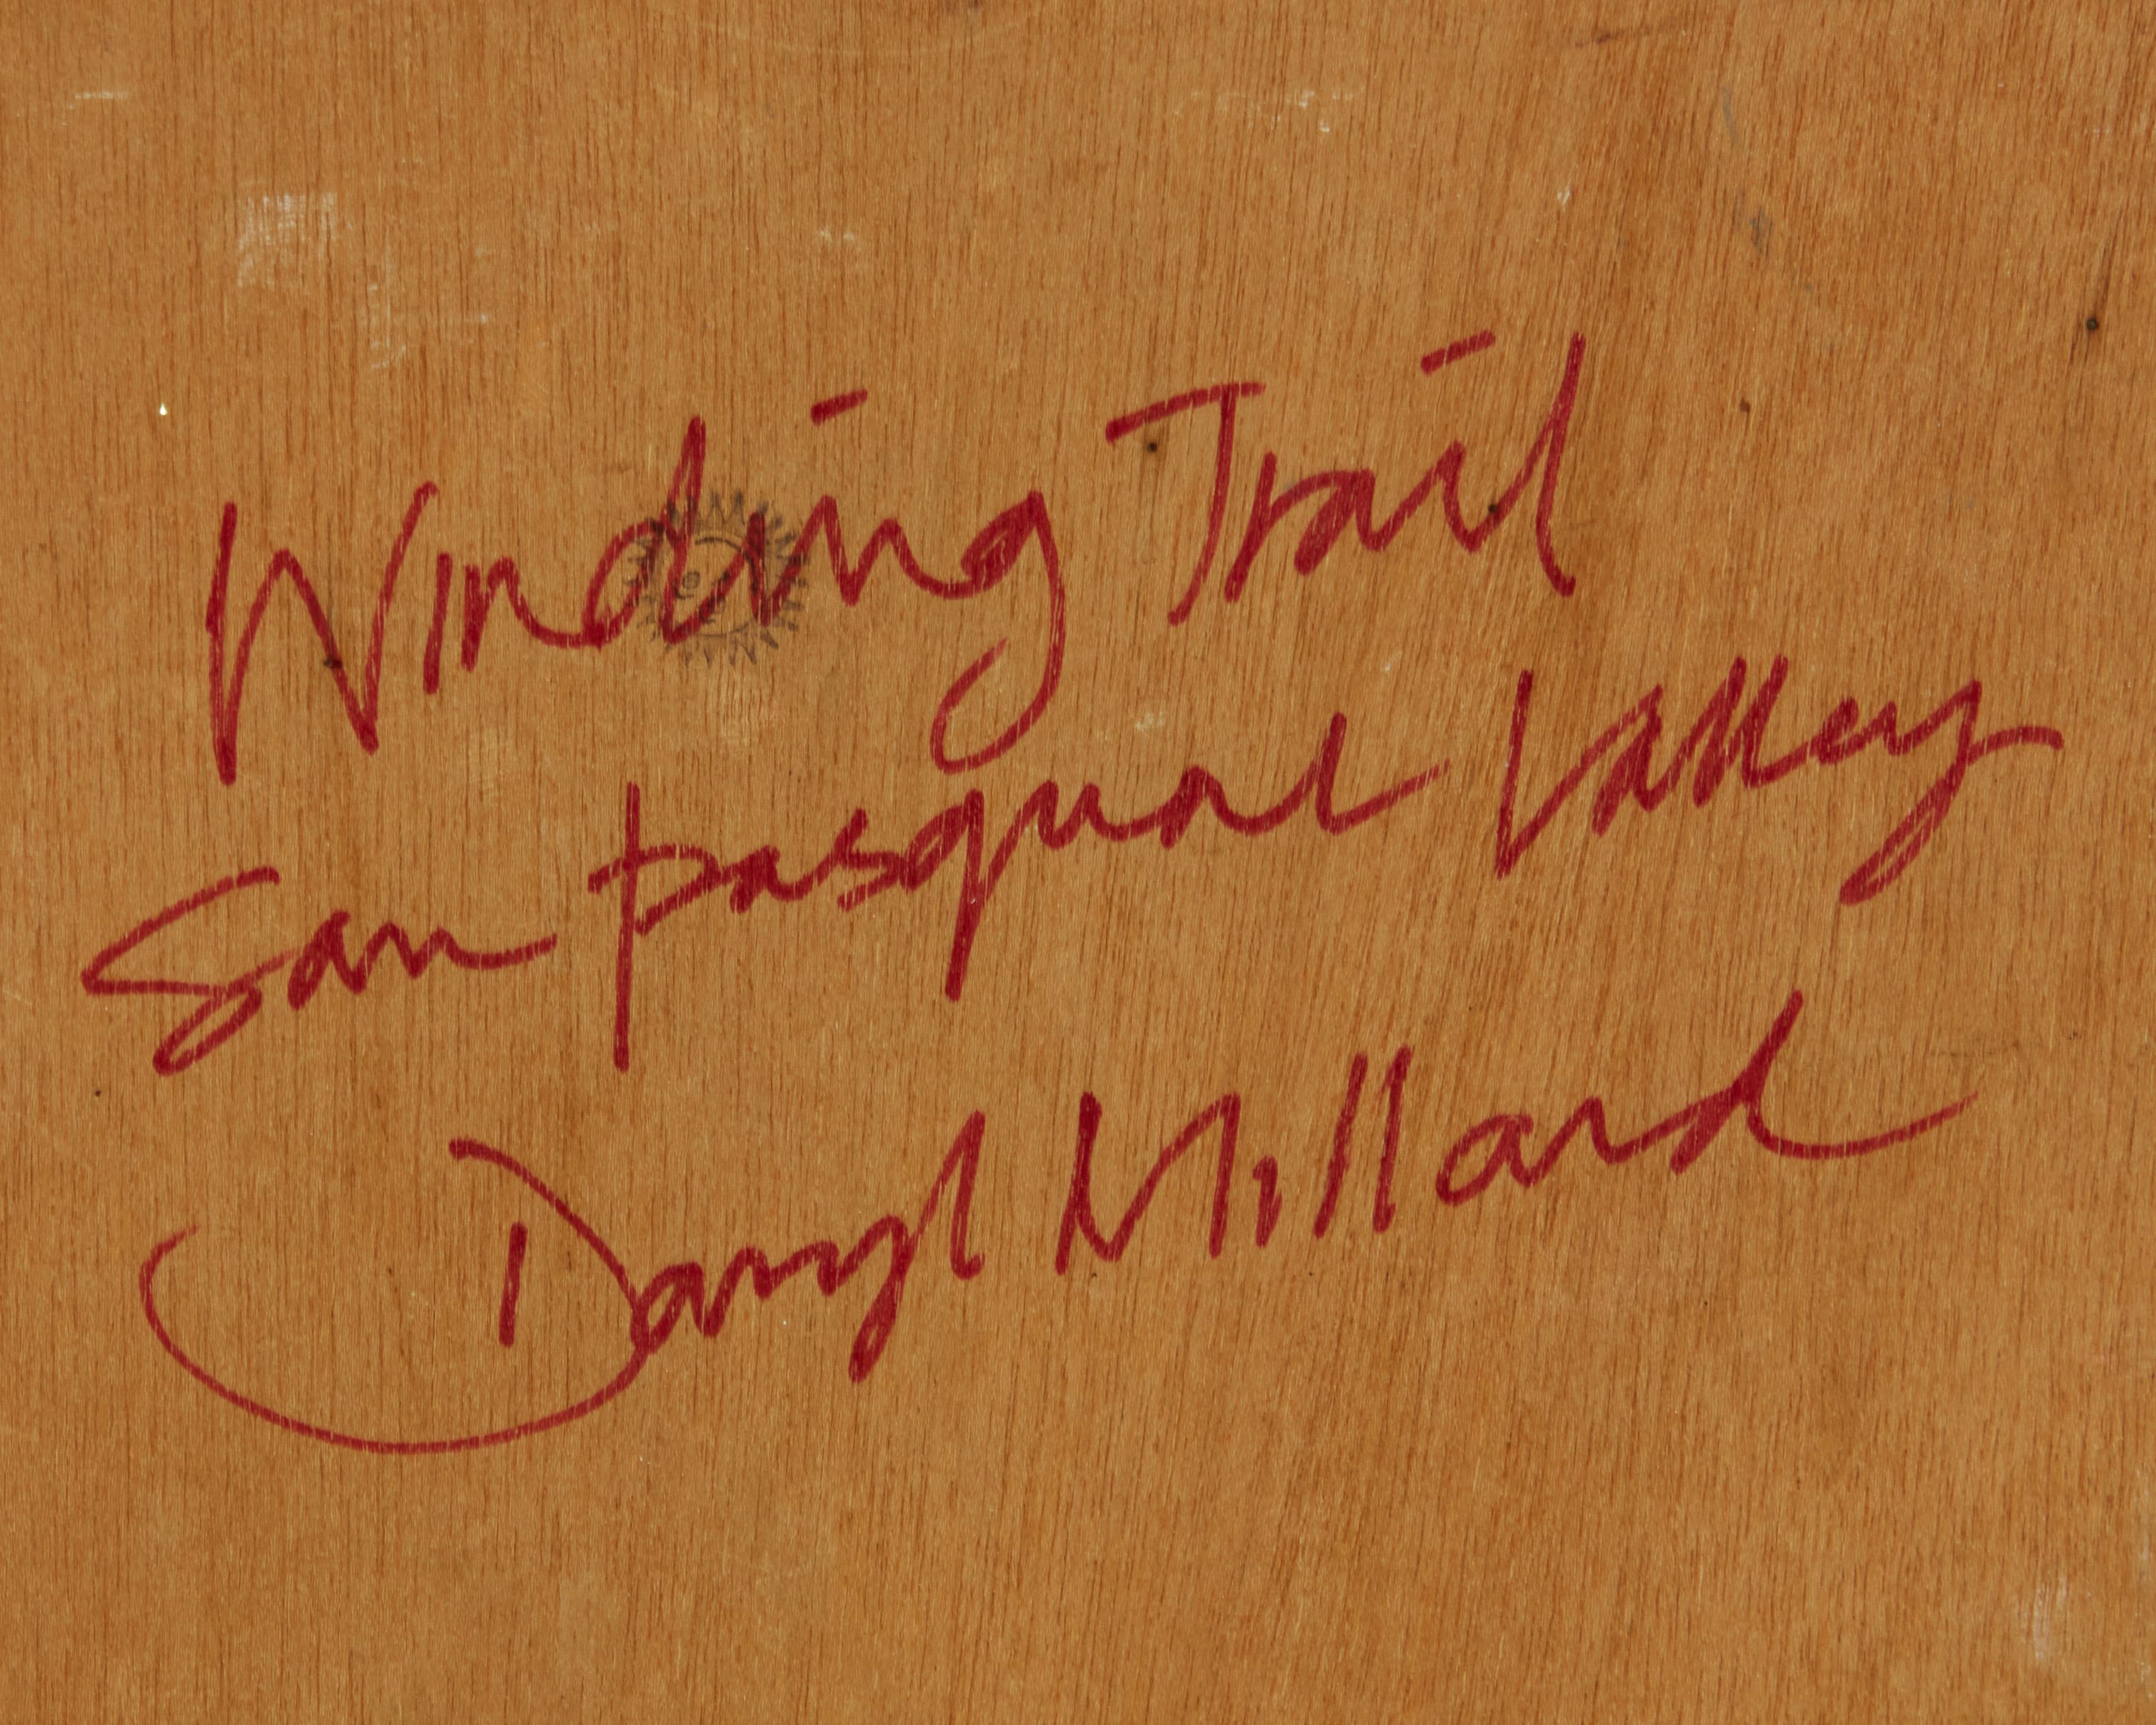 Winding Trail
San pasqual Valley
Daryl Millard